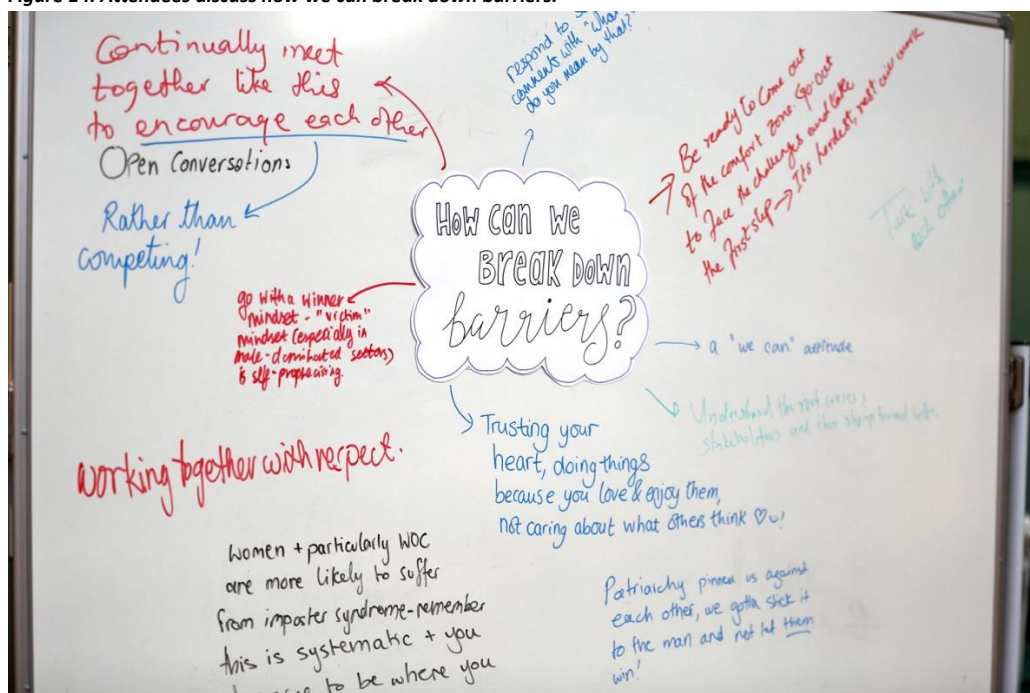 Figure 14: Attendees discuss how we can break down barriers.
Continually meet
together like this
to encourage each other
Open Conversations
Rather than
competing!
respond to
comments with "what
do you mean by that?"
Be ready to come out
of the comfort zone. Go out
to face the challenges and take
the first step → Its hardest, rest will work
Talk with
each other
How can we
Break Down
barriers?
go with a winner
mindset - "victim"
mindset (especially in
male-dominated sectors)
is self-prophecising.
→ a "we can" attitude
Understand the root causes &
stakeholders and then
Trusting your
heart, doing things
because you love & enjoy them,
not caring about what others think ♡
working together with respect.
women + particularly WOC
are more likely to suffer
from imposter syndrome-remember
this is systematic + you
to be where you
Patriarchy pinned us against
each other, we gotta stick it
to the man and not let them
win!